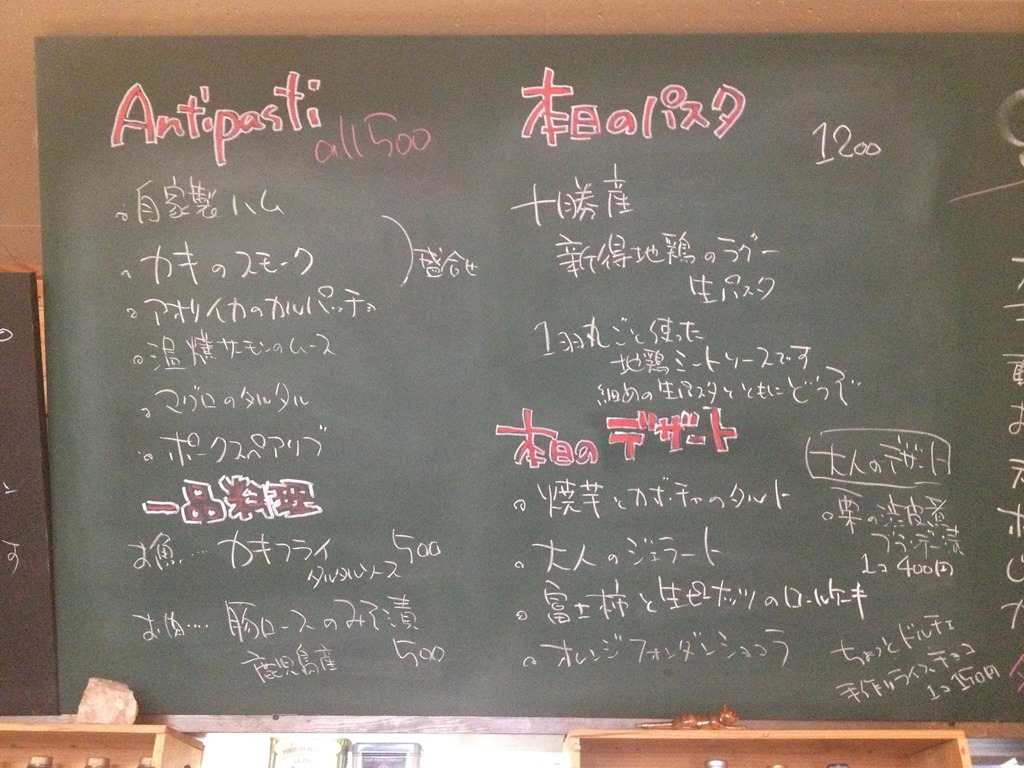 Antipasti all 500
。自家製ハム
。カキのスモーク
盛合せ
。アオリイカのカルパッチョ
。温燻サーモンのムース
。マグロのタルタル
。ポークスペアリブ
一品料理
お魚…. カキフライ 500
タルタルソース
お肉…. 豚ロースのみそ漬
鹿児島産 500
本日のパスタ 1200
十勝産
新得地鶏のラグー
生パスタ
1羽丸ごと使った
地鶏ミートソースです
細めの生パスタとともにどうぞ
本日のデザート
。焼芋とカボチャのタルト
。大人のジェラート
。富士柿と生ピーナッツのロールケーキ
。オレンジフォンダンショコラ
大人のデザート
。栗の渋皮煮
ブランデー漬
1コ 400円
ちょっとドルチェ
手作りライスチョコ
1コ 150円